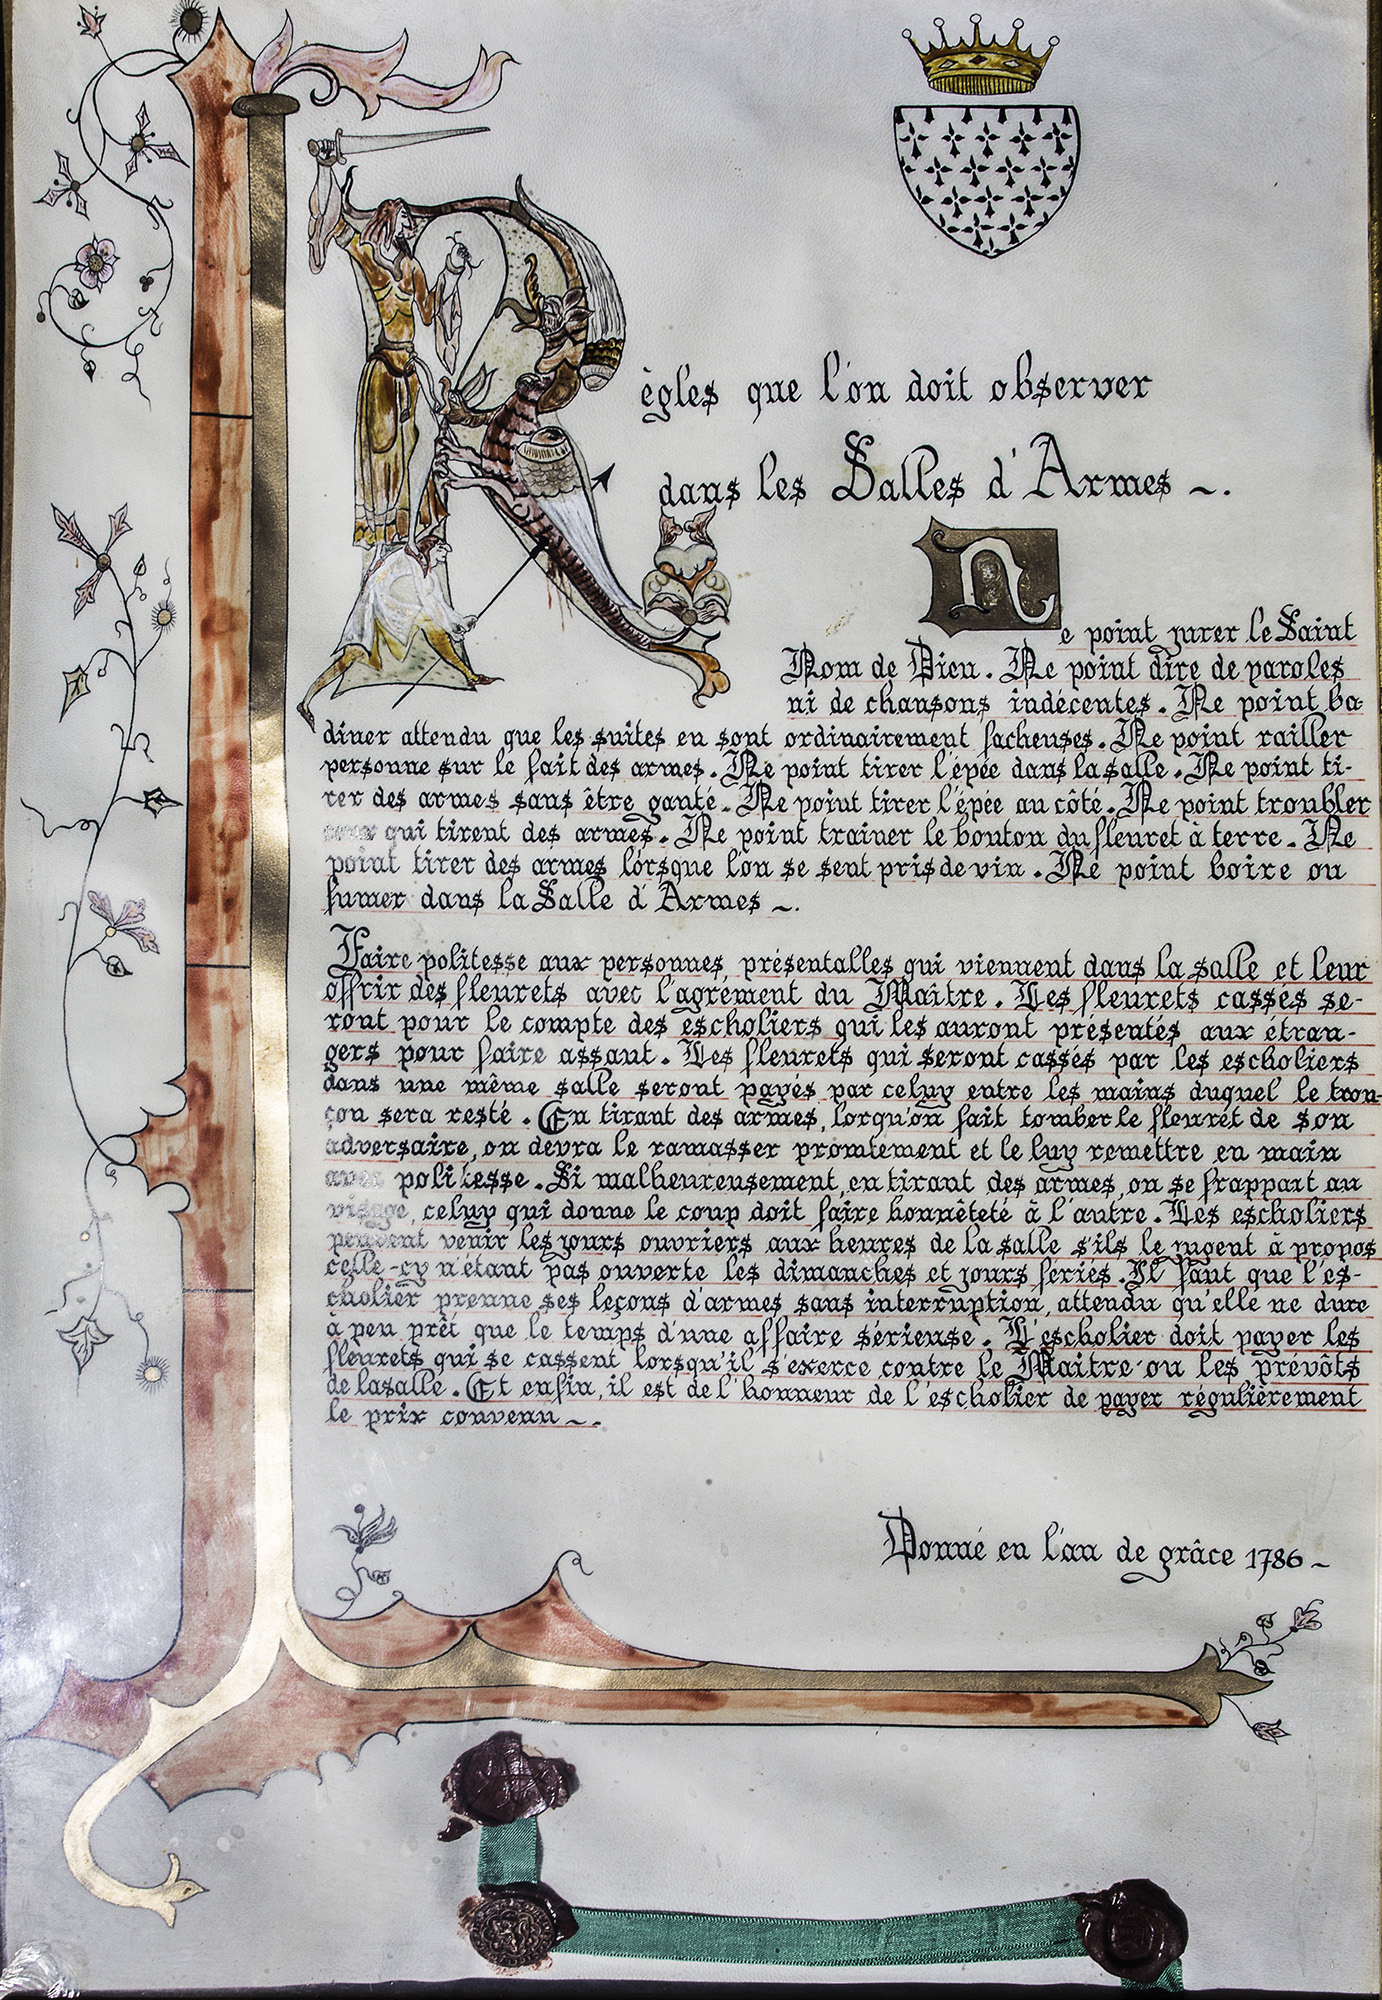 Règles que l'on doit observer
dans les Salles d'Armes ~.
Ne point jurer le Saint
Nom de Dieu. Ne point dire de paroles
ni de chansons indécentes. Ne point ba-
diner attendu que les suites en sont ordinairement facheuses. Ne point railler
personne sur le fait des armes. Ne point tirer l'épée dans la salle. Ne point ti-
rer des armes sans être ganté. Ne point tirer l'épée au côté. Ne point troubler
ceux qui tirent des armes. Ne point trainer le bouton du fleuret à terre. Ne
point tirer des armes lorsque l'on se sent pris de vin. Ne point boire ou
fumer dans la Salle d'Armes ~.
Faire politesse aux personnes présentalles qui viennent dans la salle et leur
offrir des fleurets avec l'agrément du Maître. Les fleurets cassés se-
ront pour le compte des escholiers qui les auront présentés aux étran-
gers pour faire assaut. Les fleurets qui seront cassés par les escholiers
dans une même salle seront payés par celuy entre les mains duquel le tron-
çon sera resté. En tirant des armes, lorqu'on fait tomber le fleuret de son
adversaire, on devra le ramasser promtement et le luy remettre en main
avec politesse. Si malheureusement, en tirant des armes, on se frappait au
visage, celuy qui donne le coup doit faire honnêteté à l'autre. Les escholiers
peuvent venir les jours ouvriers aux heures de la salle s'ils le jugent à propos
celle-cy n'étant pas ouverte les dimanches et jours fériés. Il faut que l'es-
cholier prenne ses leçons d'armes sans interruption, attendu qu'elle ne dure
à peu prêt que le temps d'une affaire sérieuse. L'escholier doit payer les
fleurets qui se cassent lorsqu'il s'exerce contre le Maitre ou les prévôts
de la salle. Et enfin, il est de l'honneur de l'escholier de payer régulièrement
le prix convenu ~.
Donné en l'an de grâce 1786 ~